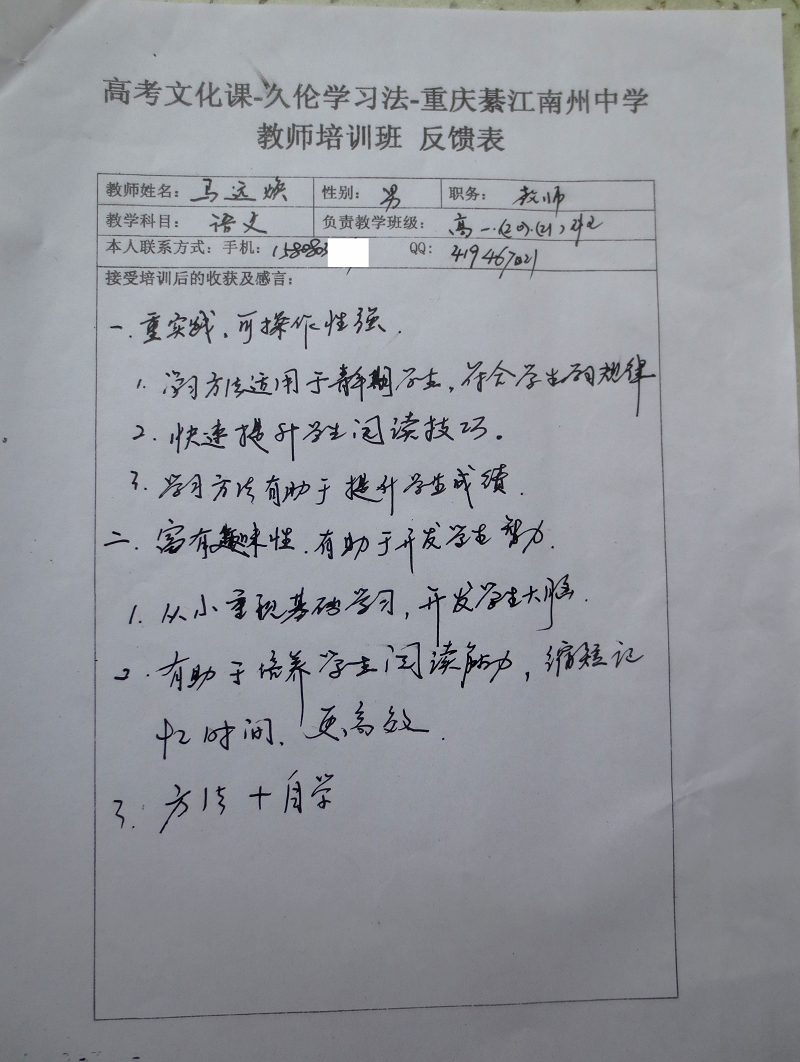 高考文化课-久伦学习法-重庆綦江南州中学
教师培训班 反馈表
教师姓名：马远焕 性别：男 职务：教师
教学科目：语文 负责教学班级：高一.(20).(21)班
本人联系方式：手机：1580803 QQ：419467021
接受培训后的收获及感言：
一.重实践、可操作性强.
1. 学习方法适用于青年期学生，符合学生的规律
2. 快速提升学生阅读技巧。
3. 学习方法有助于提升学生成绩.
二.富有趣味性.有助于开发学生智力.
1. 从小重视基础学习，开发学生大脑.
2. 有助于培养学生阅读能力，缩短记
忆时间、更高效.
3. 方法＋自学